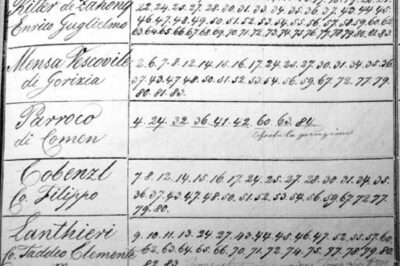 Ritter de Zahony 12. 24. 25. 27. 28. 30. 31. 33. 34. 35. 36. 37. 43. 44. 45.
Enrico Guglielmo 46. 47. 48. 49. 50. 51. 52. 53. 54. 55. 56. 57. 58. 59. 60. 62.
63. 64. 65. 66. 68. 69. 70. 71. 72. 73. 74. 75. 76. 77. 78. 79. 80. 81. 83.
Mensa Vescovile 2. 6. 7. 8. 12. 14. 15. 16. 17. 24. 25. 27. 30. 31. 34. 35. 36.
di Gorizia 37. 43. 47. 48. 50. 51. 52. 53. 54. 56. 59. 67. 72. 77. 79.
80. 81. 83.
Parroco 4. 24. 32. 36. 41. 42. 60. 63. 84.
di Comen
Cobenzl 7. 8. 12. 14. 15. 16. 17. 24. 25. 27. 28. 30. 31. 34. 35.
Co. Filippo 36. 37. 43. 47. 48. 50. 51. 52. 53. 54. 56. 59. 67. 72. 77.
79. 80.
Lanthieri 9. 10. 11. 13. 24. 27. 43. 44. 45. 46. 47. 52. 55. 57. 60.
Co. Taddeo Clemente 62. 63. 64. 65. 66. 70. 71. 72. 74. 75. 77. 78. 79. 80.
82. 83.